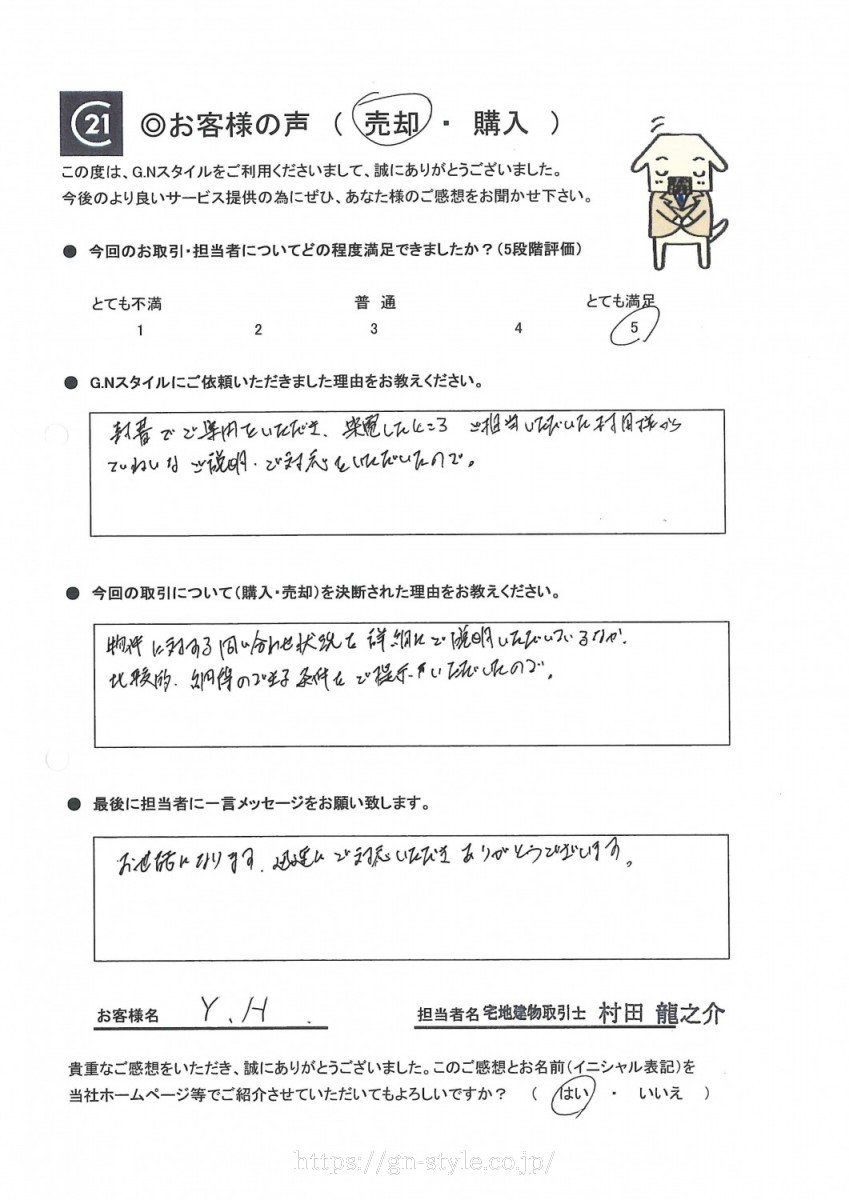 C21 ◎お客様の声 ( 売却 ・ 購入 )
この度は、G.Nスタイルをご利用くださいまして、誠にありがとうございました。
今後のより良いサービス提供の為にぜひ、あなた様のご感想をお聞かせ下さい。
● 今回のお取引・担当者についてどの程度満足できましたか？(5段階評価)
とても不満 普 通 とても満足
1 2 3 4 5
● G.Nスタイルにご依頼いただきました理由をお教えください。
封書でご案内をいただき、架電したところ ご担当いただいた村田様から
ていねいな ご説明・ご対応をいただいたので。
● 今回の取引について(購入・売却)を決断された理由をお教えください。
物件に対する問い合わせ状況を 詳細にご説明いただいているなか、
比較的、納得のできる条件をご提示いただいたので。
● 最後に担当者に一言メッセージをお願い致します。
お世話になります、迅速にご対応いただき ありがとうございます。
お客様名 Y.H. 担当者名 宅地建物取引士 村田 龍之介
貴重なご感想をいただき、誠にありがとうございました。このご感想とお名前(イニシャル表記)を
当社ホームページ等でご紹介させていただいてもよろしいですか？ ( はい ・ いいえ )
https://gn-style.co.jp/